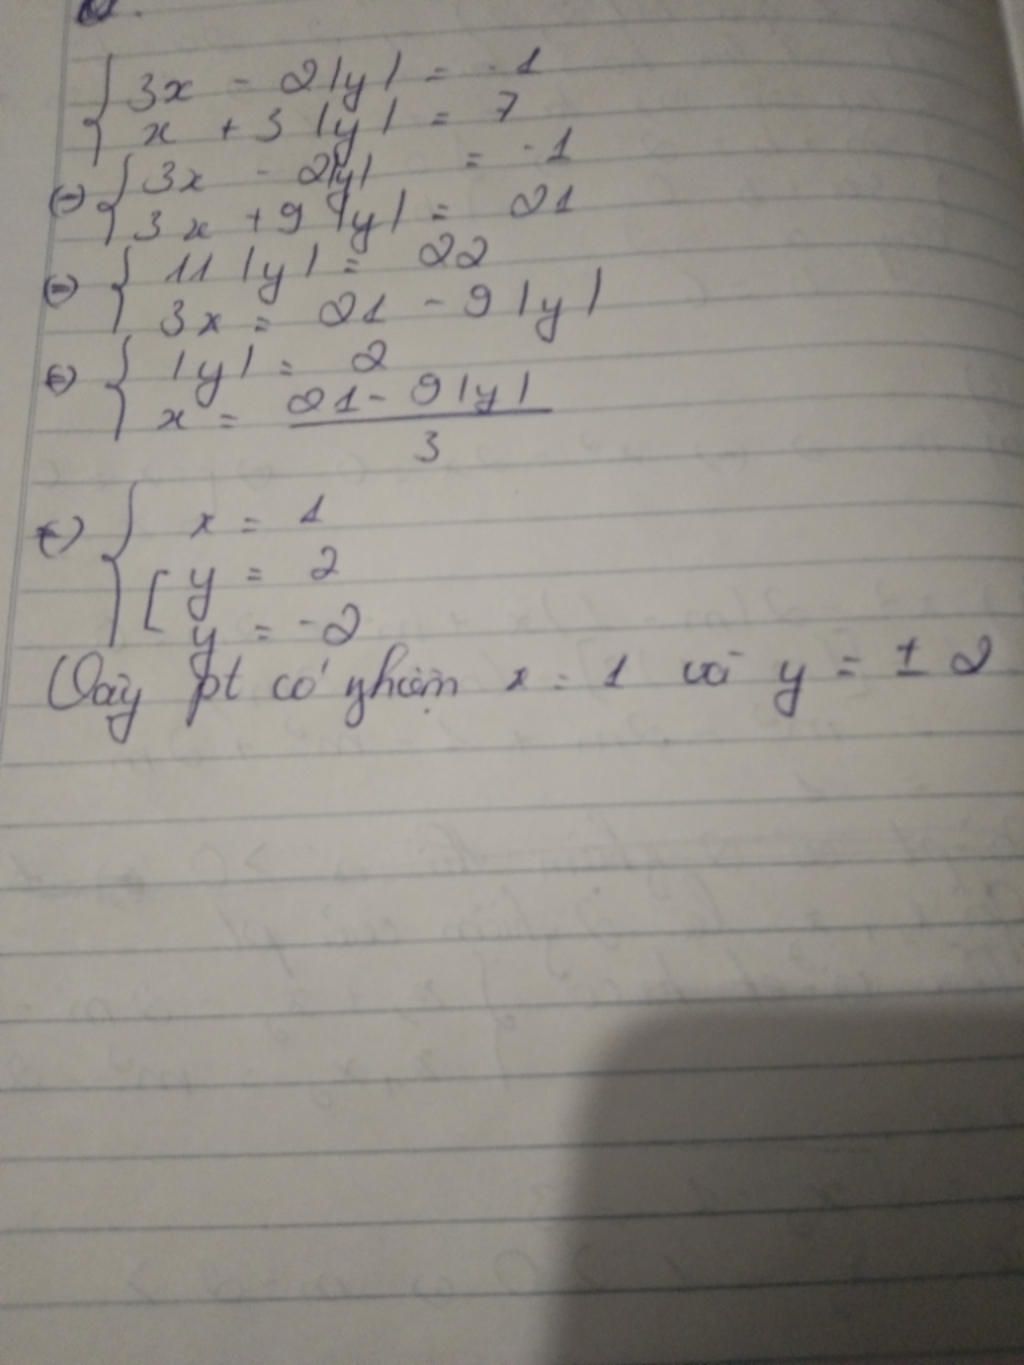 { 3x - 2|y| = -1
x + 3|y| = 7
(=) { 3x - 2|y| = -1
3x + 9|y| = 21
(=) { 11|y| = 22
3x = 21 - 9|y|
(=) { |y| = 2
x = 21 - 9|y|
3
(=) { x = 1
[ y = 2
y = -2
Vậy pt có nghiệm x = 1 và y = ± 2